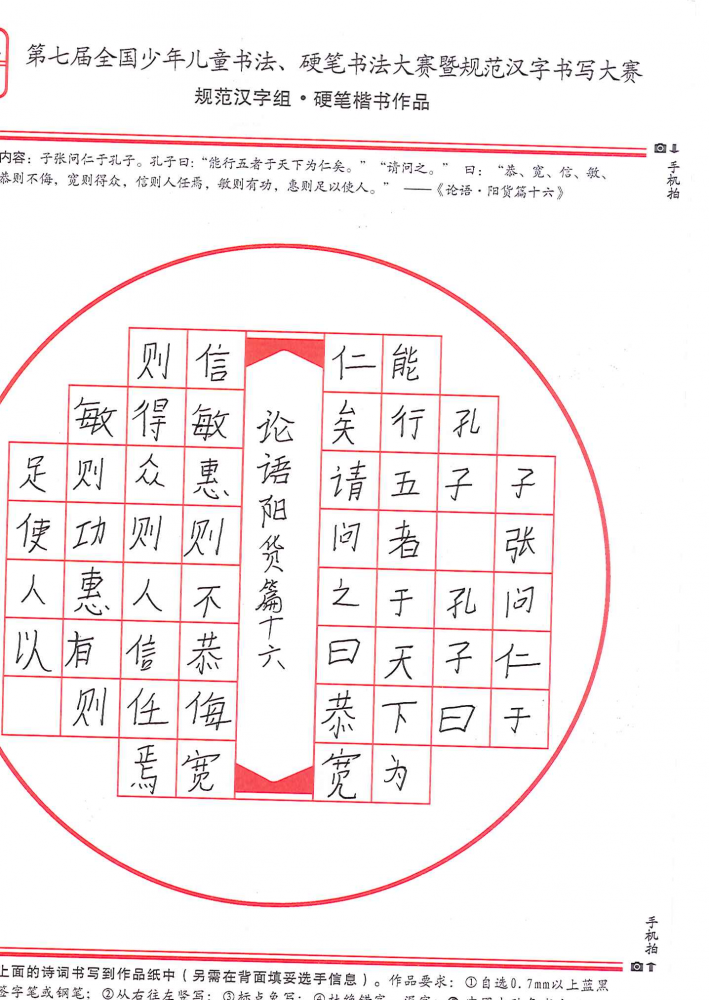 第七届全国少年儿童书法、硬笔书法大赛暨规范汉字书写大赛
规范汉字组·硬笔楷书作品
手机拍
内容：子张问仁于孔子。孔子曰：“能行五者于天下为仁矣。”“请问之。”曰：“恭、宽、信、敏、
恭则不侮，宽则得众，信则人任焉，敏则有功，惠则足以使人。”——《论语·阳货篇十六》
子张问仁于
孔子孔子曰
能行五者于天下为
仁矣请问之曰恭宽
论语阳货篇十六
信敏惠则不恭侮宽
则得众则人信任焉
敏则功惠有则
足使人以
手机拍
上面的诗词书写到作品纸中（另需在背面填妥选手信息）。作品要求：①自选0.7mm以上蓝黑
签字笔或钢笔；②从右往左竖写；③标点免写；④杜绝错字、漏字；